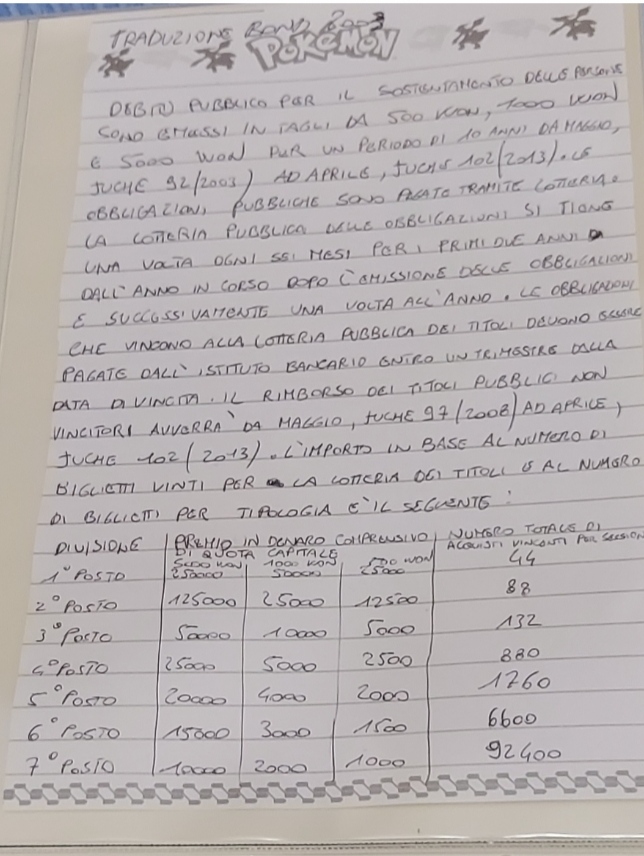 TRADUZIONE BOND 2003
POKéMON
DEBITO PUBBLICO PER IL SOSTENTAMENTO DELLE PERSONE
SONO EMESSI IN TAGLI DA 500 WON, 1000 WON
E 5000 WON PER UN PERIODO DI 10 ANNI DA MAGGIO,
JUCHE 92/2003) AD APRILE, JUCHE 102/(2013). LE
OBBLIGAZIONI PUBBLICHE SONO PAGATE TRAMITE LOTTERIA.
LA LOTTERIA PUBBLICA DELLE OBBLIGAZIONI SI TIENE
UNA VOLTA OGNI SEI MESI PER I PRIMI DUE ANNI
DALL'ANNO IN CORSO DOPO L'EMISSIONE DELLE OBBLIGAZIONI
E SUCCESSIVAMENTE UNA VOLTA ALL'ANNO. LE OBBLIGAZIONI
CHE VINCONO ALLA LOTTERIA PUBBLICA DEI TITOLI DEVONO ESSERE
PAGATE DALL'ISTITUTO BANCARIO ENTRO UN TRIMESTRE DALLA
DATA DI VINCITA. IL RIMBORSO DEI TITOLI PUBBLICI NON
VINCITORI AVVERRÀ DA MAGGIO, JUCHE 97/(2008) AD APRILE,
JUCHE 102/(2013). L'IMPORTO IN BASE AL NUMERO DI
BIGLIETTI VINTI PER LA LOTTERIA DEI TITOLI E AL NUMERO
DI BIGLIETTI PER TIPOLOGIA E' IL SEGUENTE:
DIVISIONE PREMIO IN DENARO COMPRENSIVO DI QUOTA CAPITALE NUMERO TOTALE DI ACQUISTI VINCENTI PER SESSION
5000 WON 1000 WON 500 WON
1° POSTO 250000 50000 25000 44
2° POSTO 125000 25000 12500 88
3° POSTO 50000 10000 5000 132
4° POSTO 25000 5000 2500 880
5° POSTO 20000 4000 2000 1760
6° POSTO 15000 3000 1500 6600
7° POSTO 10000 2000 1000 92400